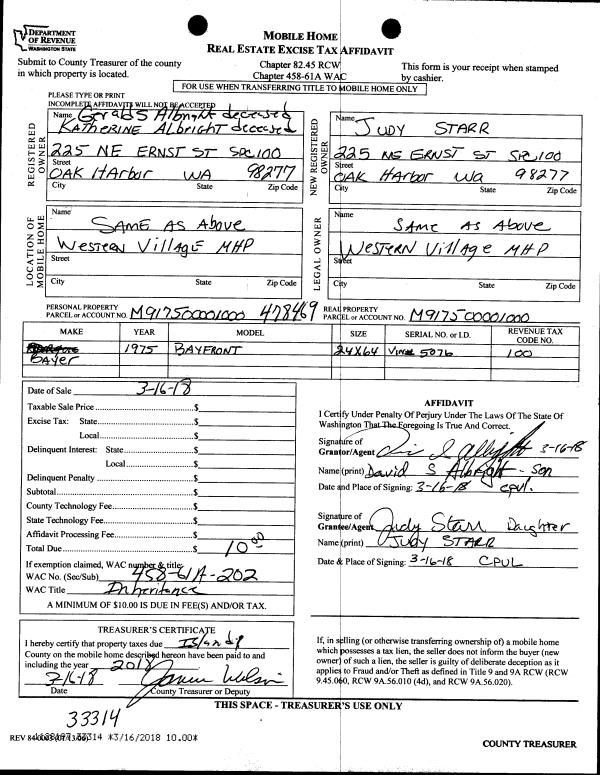 DEPARTMENT
OF REVENUE
WASHINGTON STATE
MOBILE HOME
REAL ESTATE EXCISE TAX AFFIDAVIT
Submit to County Treasurer of the county
in which property is located.
Chapter 82.45 RCW
Chapter 458-61A WAC
This form is your receipt when stamped
by cashier.
FOR USE WHEN TRANSFERRING TITLE TO MOBILE HOME ONLY
PLEASE TYPE OR PRINT
INCOMPLETE AFFIDAVITS WILL NOT BE ACCEPTED
REGISTERED
OWNER
Name Gerald S Albright deceased
Katherine Albright deceased
225 NE ERNST ST SPC 100
Street
OAK HArbor WA 98277
City State Zip Code
NEW REGISTERED
OWNER
Name
JUDY STARR
225 NE ERNST ST SPC 100
Street
OAK HArbor Wa 98277
City State Zip Code
LOCATION OF
MOBILE HOME
Name
SAME AS Above
Western Village MHP
Street
City State Zip Code
LEGAL OWNER
Name
SAME AS Above
Western Village MHP
Street
City State Zip Code
PERSONAL PROPERTY
PARCEL or ACCOUNT NO. M917500001000 478469
REAL PROPERTY
PARCEL or ACCOUNT NO. M917500001000
MAKE YEAR MODEL SIZE SERIAL NO. or I.D. REVENUE TAX
CODE NO.
Bayer 1975 BAYFRONT 24X64 5076 100
Date of Sale 3-16-18
Taxable Sale Price $
Excise Tax: State $
Local $
Delinquent Interest: State $
Local $
Delinquent Penalty $
Subtotal $
County Technology Fee $
State Technology Fee $
Affidavit Processing Fee $
Total Due $ 10.00
If exemption claimed, WAC number & title:
WAC No. (Sec/Sub) 458-61A-202
WAC Title Inheritance
A MINIMUM OF $10.00 IS DUE IN FEE(S) AND/OR TAX.
AFFIDAVIT
I Certify Under Penalty Of Perjury Under The Laws Of The State Of
Washington That The Foregoing Is True And Correct.
Signature of
Grantor/Agent 3-16-18
Name (print) David S Albright - Son
Date and Place of Signing: 3-16-18 CPVL.
Signature of
Grantee/Agent Judy Starr Daughter
Name (print) JUDY STARR
Date & Place of Signing: 3-16-18 CPUL
TREASURER'S CERTIFICATE
I hereby certify that property taxes due Island
County on the mobile home described hereon have been paid to and
including the year 2018
3-16-18
Date County Treasurer or Deputy
If, in selling (or otherwise transferring ownership of) a mobile home
which possesses a tax lien, the seller does not inform the buyer (new
owner) of such a lien, the seller is guilty of deliberate deception as it
applies to Fraud and/or Theft as defined in Title 9 and 9A RCW (RCW
9.45.060, RCW 9A.56.010 (4d), and RCW 9A.56.020).
THIS SPACE - TREASURER'S USE ONLY
33314
REV 84 0003 33314 *3/16/2018 10.00*
COUNTY TREASURER